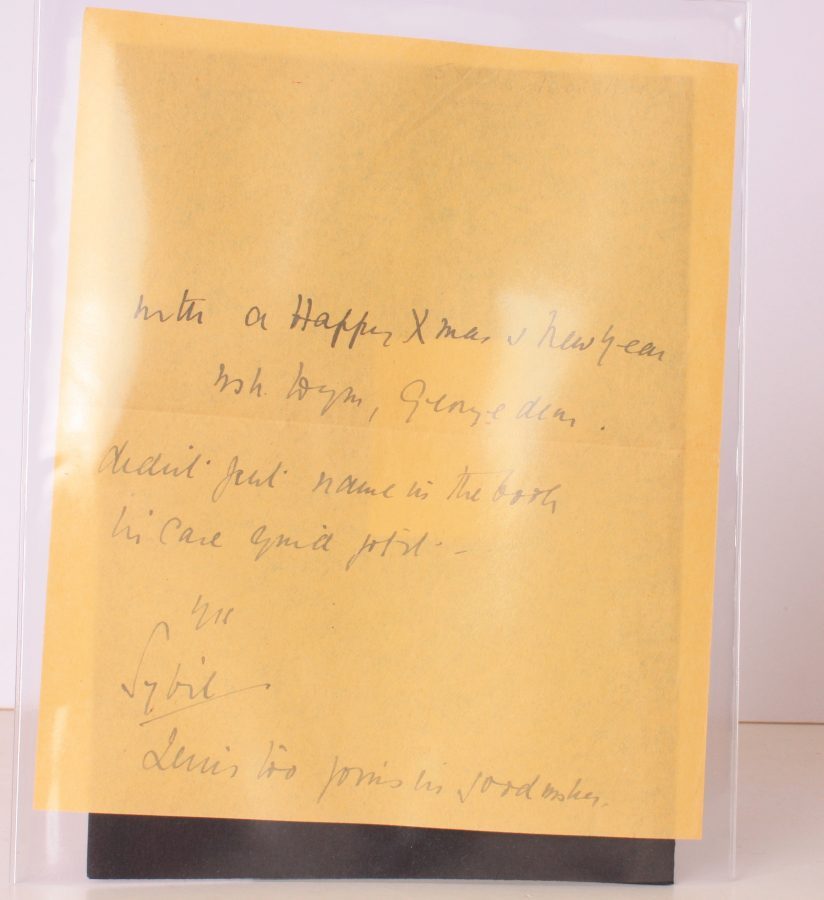 with a Happy Xmas & New Year
wish to you, George dear.
didn't put name in the book
in case you'd got it –
Yrs
Sybil
Lewis too joins in good wishes.